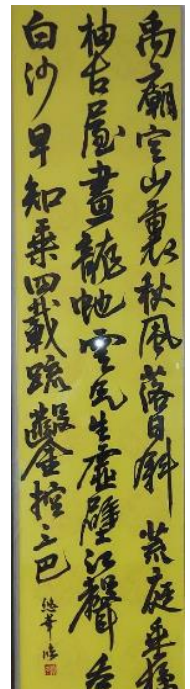 禹廟空山裏秋風落日斜荒庭垂橘
柚古屋畫龍蛇雲氣生虛壁江聲走
白沙早知乘四載疏鑿控三巴